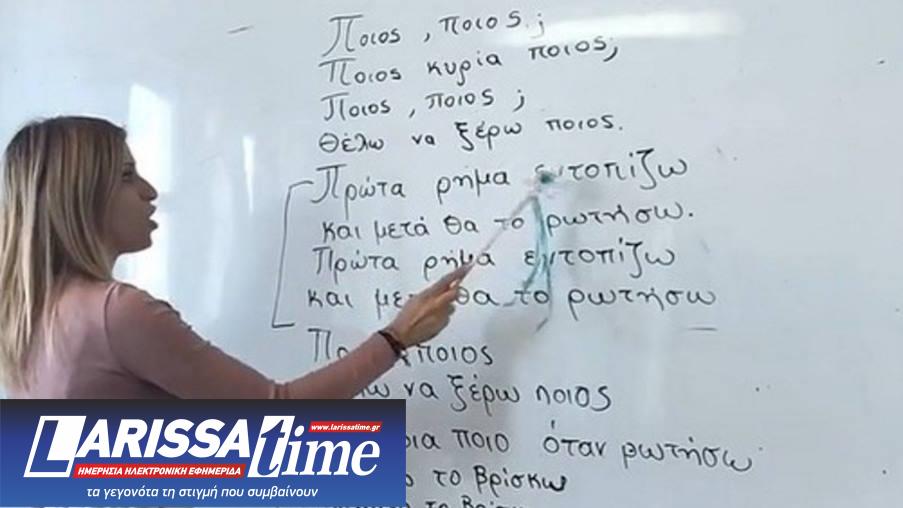 Ποιος, ποιος;
Ποιος κυρία ποιος;
Ποιος, ποιος;
Θέλω να ξέρω ποιος.
Πρώτα ρήμα εντοπίζω
και μετά θα το ρωτήσω.
Πρώτα ρήμα εντοπίζω
και θα το ρωτήσω
ποιος
να ξέρω ποιος
ποιο όταν ρωτήσω
το βρίσκω
LARISSAtime
www.larissatime.gr
ΗΜΕΡΗΣΙΑ ΗΛΕΚΤΡΟΝΙΚΗ ΕΦΗΜΕΡΙΔΑ
τα γεγονότα τη στιγμή που συμβαίνουν